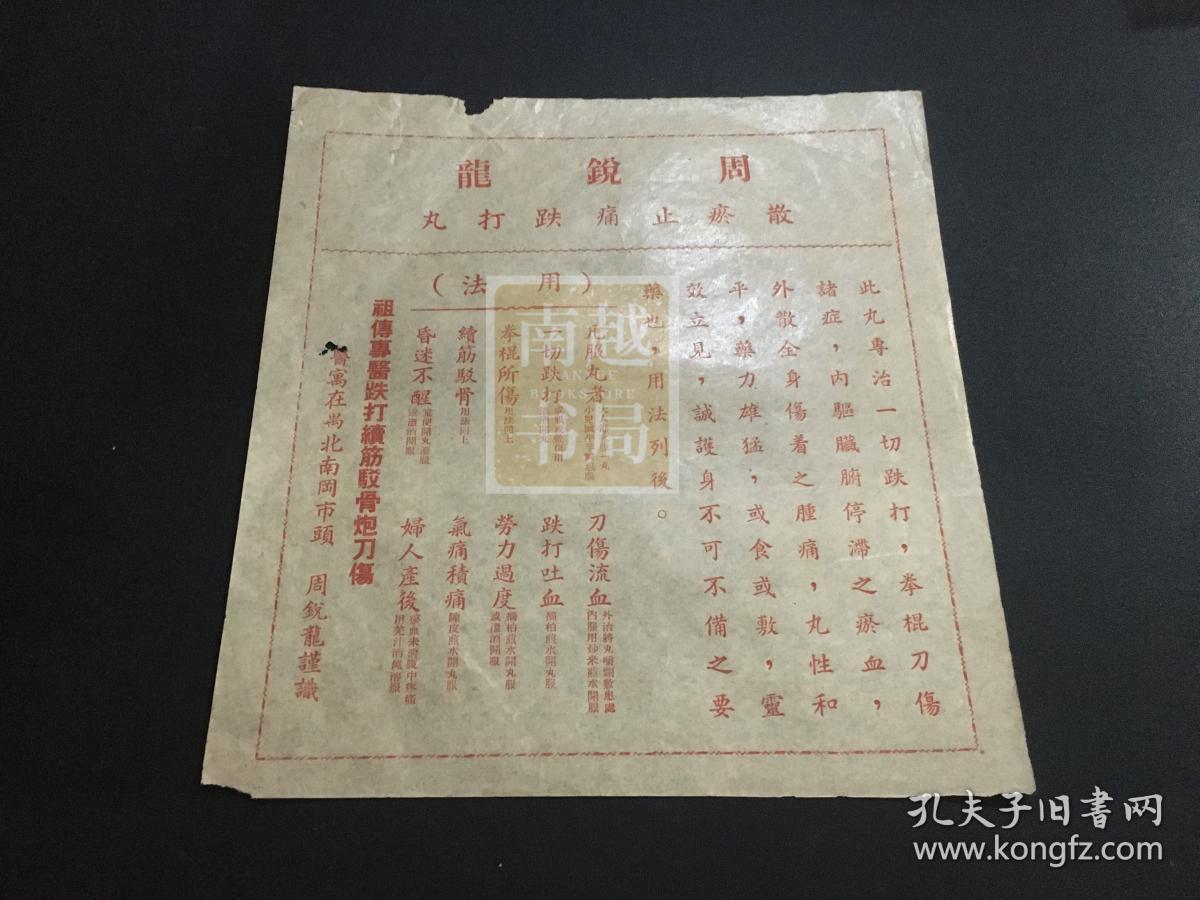 周銳龍
散瘀止痛跌打丸
此丸專治一切跌打，拳棍刀傷
諸症，內驅臟腑停滯之瘀血，
外散全身傷着之腫痛，丸性和
平，藥力雄猛，或食或敷，靈
效立見，誠護身不可不備之要
藥也，用法列後。
（用法）
凡服丸者
一切跌打
拳棍所傷 用法同上
續筋駁骨 用法同上
昏迷不醒
刀傷流血 外治將丸嚼爛敷患處 內服用炒米煎水開服
跌打吐血 扁柏煎水開丸服
勞力過度 扁柏煎水開丸服 或溫酒開服
氣痛積痛 陳皮煎水開丸服
婦人產後
祖傳專醫跌打續筋駁骨炮刀傷
醫寓在禺北南岡市頭 周銳龍謹識
南越书局
BOOKSTORE
孔夫子旧书网
www.kongfz.com